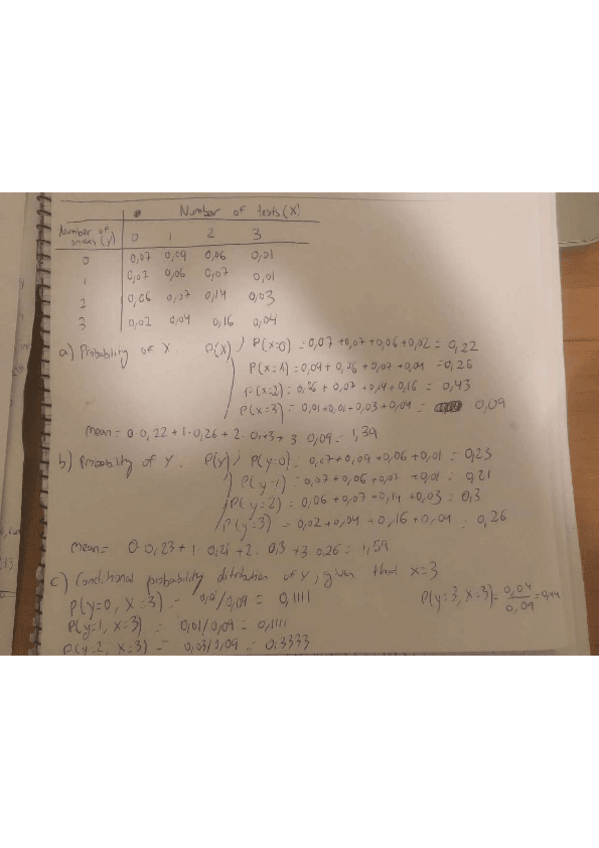 Number of tests (X)
Number of (y) 0 1 2 3
0 0,07 0,09 0,06 0,01
1 0,07 0,06 0,07 0,01
2 0,06 0,07 0,14 0,03
3 0,02 0,04 0,16 0,04
a) Probability of X. P(X) P(X=0) = 0,07 + 0,07 + 0,06 + 0,02 = 0,22
P(X=1) = 0,04 + 0,06 + 0,07 + 0,09 = 0,26
P(X=2) = 0,06 + 0,07 + 0,14 + 0,16 = 0,43
P(X=3) = 0,01 + 0,01 + 0,03 + 0,04 = 0,09
Mean = 0·0,22 + 1·0,26 + 2·0,43 + 3·0,09 = 1,39
b) Probability of Y. P(y) P(y=0) = 0,07 + 0,09 + 0,06 + 0,01 = 0,23
P(y=1) = 0,07 + 0,06 + 0,07 + 0,01 = 0,21
P(y=2) = 0,06 + 0,07 + 0,14 + 0,03 = 0,3
P(y=3) = 0,02 + 0,04 + 0,16 + 0,04 = 0,26
Mean = 0·0,23 + 1·0,21 + 2·0,3 + 3·0,26 = 1,59
c) Conditional probability ditribution of Y, given that x=3
P(y=0, X=3) = 0,01/0,09 = 0,1111
P(y=3, X=3) = 0,04/0,09 = 0,44
P(y=1, X=3) = 0,01/0,09 = 0,1111
P(y=2, X=3) = 0,03/0,09 = 0,3333